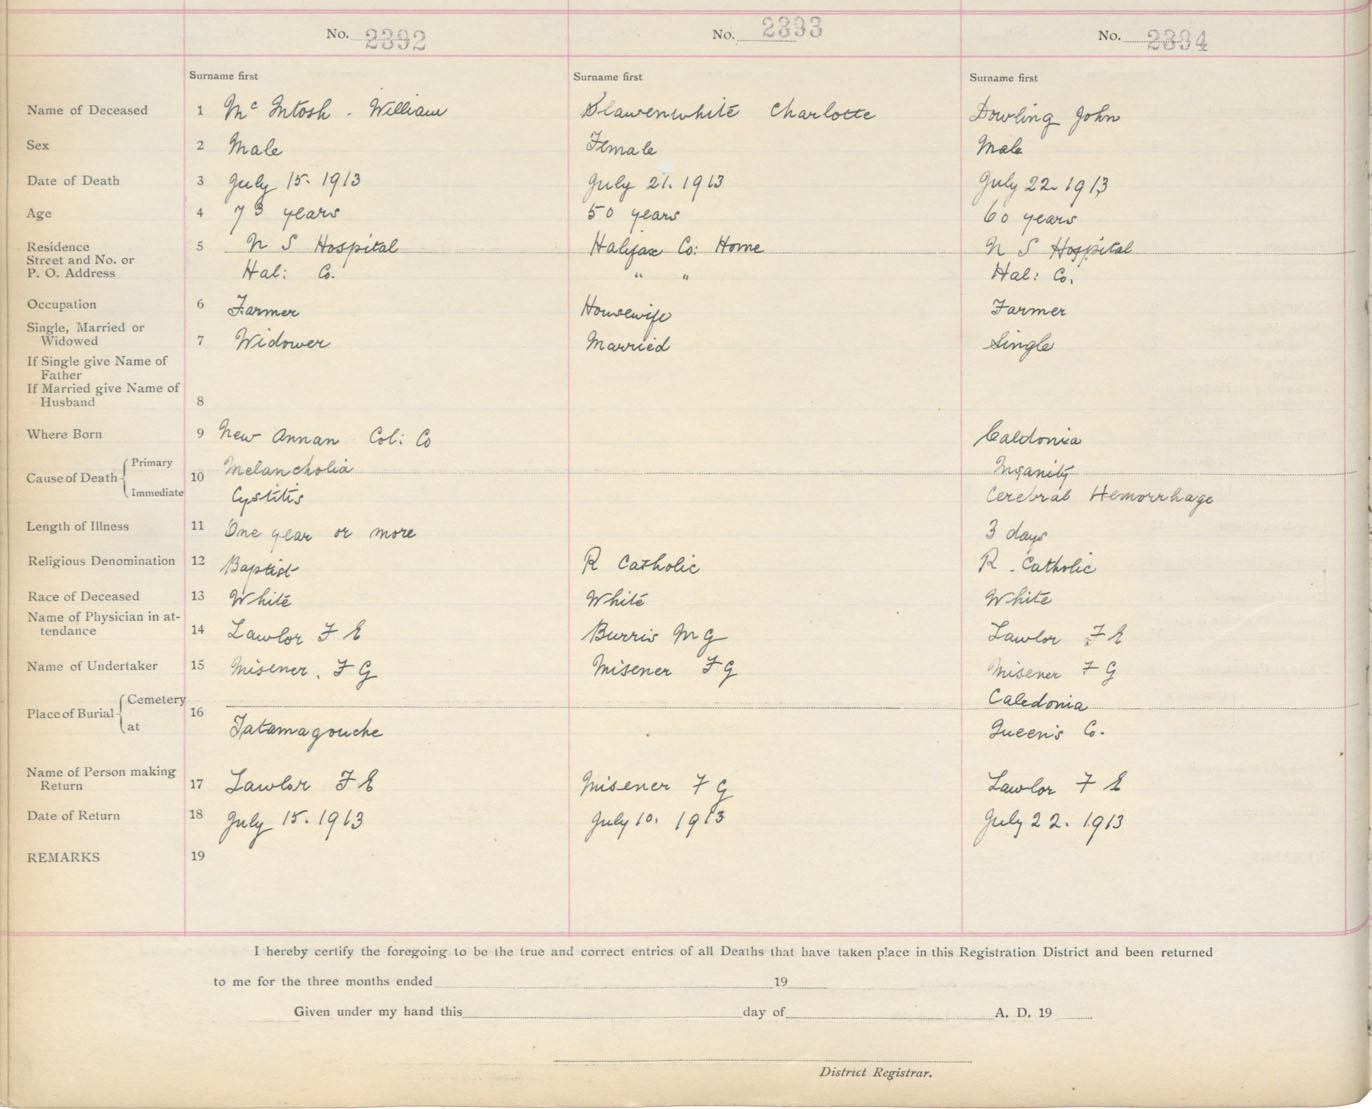 No. 2392 No. 2393 No. 2394
Surname first Surname first Surname first
Name of Deceased 1 Mc Intosh . William Slawenwhite Charlotte Dowling John
Sex 2 Male Female Male
Date of Death 3 July 15. 1913 July 21. 1913 July 22. 1913
Age 4 73 years 50 years 60 years
Residence 5 N S Hospital Halifax Co: Home N S Hospital
Street and No. or
P. O. Address Hal: Co. " " Hal: Co.
Occupation 6 Farmer Housewife Farmer
Single, Married or
Widowed 7 Widower Married Single
If Single give Name of
Father
If Married give Name of
Husband 8
Where Born 9 New Annan Col: Co Caldonia
Cause of Death Primary 10 Melancholia Insanity
Immediate Cystitis Cerebral Hemorrhage
Length of Illness 11 One year or more 3 days
Religious Denomination 12 Baptist R Catholic R . Catholic
Race of Deceased 13 White White White
Name of Physician in at-
tendance 14 Lawlor F E Burris M G Lawlor F E
Name of Undertaker 15 Misener. F G Misener F G Misener F G
Place of Burial Cemetery 16 Caledonia
at Tatamagouche Queen's Co.
Name of Person making
Return 17 Lawlor F E Misener F G Lawlor F E
Date of Return 18 July 15. 1913 July 10. 1913 July 22. 1913
REMARKS 19
I hereby certify the foregoing to be the true and correct entries of all Deaths that have taken place in this Registration District and been returned
to me for the three months ended 19
Given under my hand this day of A. D. 19
District Registrar.